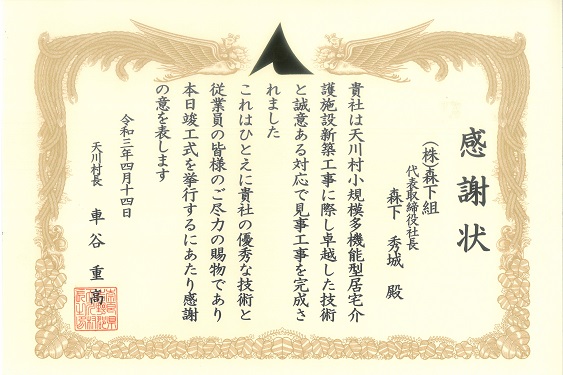 感謝状
(株)森下組
代表取締役社長
森下 秀城 殿
貴社は天川村小規模多機能型居宅介
護施設新築工事に際し卓越した技術
と誠意ある対応で見事工事を完成さ
れました
これはひとえに貴社の優秀な技術と
従業員の皆様のご尽力の賜物であり
本日竣工式を挙行するにあたり感謝
の意を表します
令和三年四月十四日
天川村長 車谷 重高